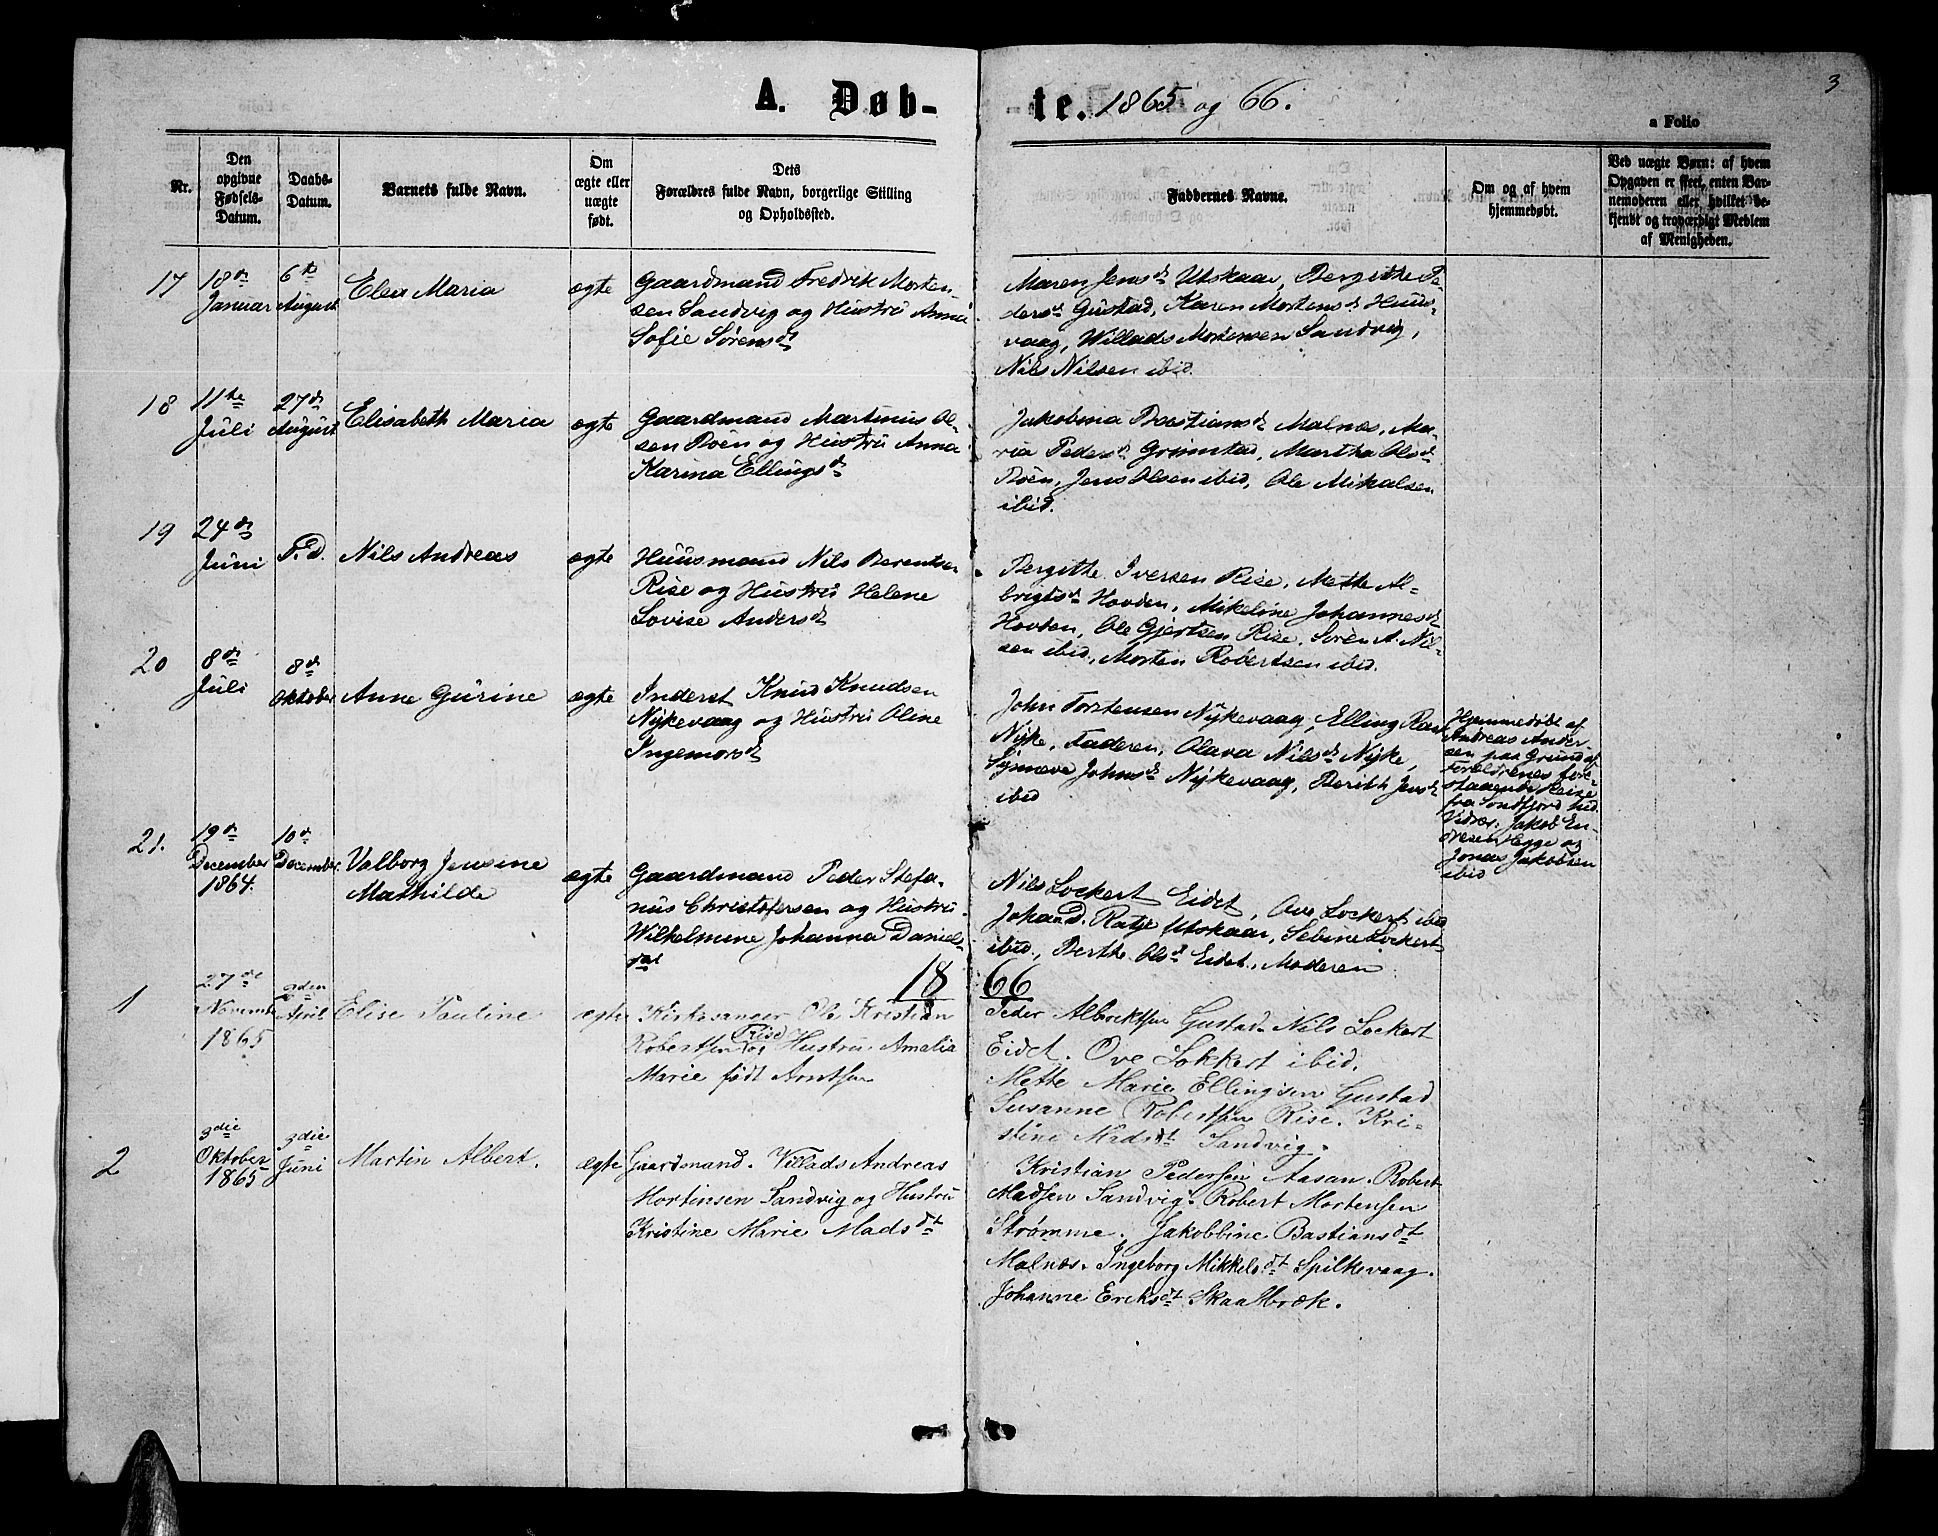 3
A. Døb-
te. 1865 og 66.
a Folio
Nr.
Den
opgivne
Fødsels-
Datum.
Daabs-
Datum.
Barnets fulde Navn.
Om
ægte eller
uægte
født.
Dets
Forældres fulde Navn, borgerlige Stilling
og Opholdssted.
Faddernes Navne.
Om og af hvem
hjemmedøbt.
Ved uægte Børn: af hvem
Opgaven er skeet, enten Bar-
nemoderen eller hvilket be-
kjendt og troværdigt Medlem
af Menigheden.
17
18de
Januar
6te
August
Elen Maria
ægte
Gaardmand Fredrik Morten-
sen Sandvig og Hustru Anna
Sofie Sørensdt
Maren Jensdt Utskaar, Bergitte Pe-
dersdt Gustad, Karen Mortensdt Huus-
vaag, Willads Mortensen Sandvig,
Nils Nilsen ibid.
18
11te
Juli
27de
August
Elisabeth Maria
ægte
Gaardmand Martinus Ol-
sen Roen og Hustru Anna
Karina Ellingsdt
Jakobina Bastiansdt Malnæs, Ma-
ria Pedersdt Grimstad, Martha Olsdt
Roen, Jens Olsen ibid, Ole Mikalsen
ibid.
19
24de
Juni
F. D.
Nils Andreas
ægte
Huusmand Nils Berentsen
Rise og Hustru Helene
Lovise Andersdt
Bergitte Iversen Rise, Mette Al-
brigtsdt Hovden, Mikeline Johannesdt
Hovden, Ole Gjertsen Rise, Søren A. Nil-
sen ibid, Morten Robertsen ibid.
20
8de
Juli
8de
Oktober
Anne Gurine
ægte
Inderst Knud Knudsen
Nykevaag og Hustru Oline
Ingemorsdt
John Torstensen Nykevaag, Elling Rasm
Nyke, Faderen, Olava Nilsdt Nyke,
Synneva Johnsdt Nykevaag, Berith Jensdt
ibid
Hjemmedöbt af
Andreas Ander-
sen paa Grund af
Forældrenes fore-
staaende Reise
fra Söndfjord hid.
Vidner: Jakob En-
dresen Hegge og
Jonas Jakobsen
ibid
21.
19de
December
1864.
10de
December
Valborg Jensine
Mathilde
ægte
Gaardmand Peder Stefa-
nus Christofersen og Hustru
Wilhelmine Johanna Daniels-
dat
Nils Lockert Eidet, Ove Lockert ibid
Johan D. Ratje Utskaar, Sebine Lockert
ibid, Berthe Olsdt Eidet, Moderen
1866
1
27de
Novembr
1865
2den
April
Elise Pauline
ægte
Kirkesanger Ole Kristian
Robertsen Rise og Hustru Amalia
Marie født Arntsen
Peder Albrektsen Gustad. Nils Lockert
Eidet. Ove Lokkert ibid.
Mette Marie Ellingsen Gustad
Susanne Robertsen Rise. Kri-
stine Madsdt Sandvig.
2
3die
Oktober
1865
3die
Juni
Martin Albert.
ægte
Gaardmand. Villads Andreas
Mortinsen Sandvig og Hustru
Kristine Marie Madsdt
Kristian Pedersen Aasan. Robert
Madsen Sandvig. Robert Mortensen
Strømme. Jakobbine Bastiansdt
Malnæs. Ingeborg Mikkelsdt Spilkevaag.
Johanne Eriksdt Skaalbræk.